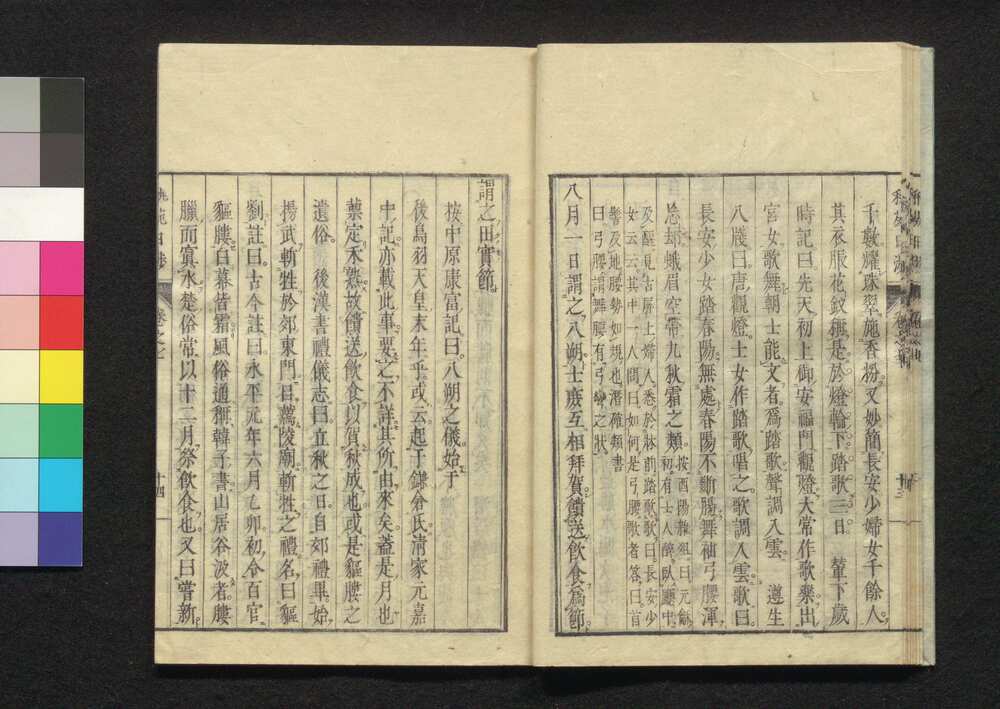 千數耀珠翠施香粉又妙簡長安少婦女千餘人
其衣服花釵稱是於燈輪下踏歌三日　輦下歲
時記曰先天初上御安福門觀燈大常作歌樂出
宮女歌舞朝士能文者爲踏歌聲調入雲　遵生
八牋曰唐觀燈士女作踏歌唱之歌調入雲歌曰
長安少女踏春陽無處春陽不斷腸舞袖弓腰渾
忘却蛾眉空帶九秋霜之類
按酉陽雜俎曰元和
初有士人醉臥廳中
及醒見古屏上婦人悉於牀前踏歌歌曰長安少
女云云其中一人問曰如何是弓腰歌者答曰首
髻及地腰勢如規也潛確類書
曰弓腰謂舞腰有弓彎之狀
八月一日謂之八朔士庶互相拜賀饋送飲食爲節
謂之田實節
按中原康富記曰八朔之儀始于
後鳥羽天皇末年乎或云起于鎌倉氏淸家元嘉
中記亦載此事要之不詳其所由來矣葢是月也
藁定禾熟故饋送飲食以賀秋成也或是貙膢之
遺俗　後漢書禮儀志曰立秋之日自郊禮畢始
揚武斬牲於郊東門日薦陵廟斬牲之禮名曰貙
劉註曰古今註曰永平元年六月乙卯初令百官
貙膢白幕皆霜風俗通稱韓子書山居谷汲者膢
臘而寘水楚俗常以十二月祭飲食也又曰嘗新
卷之七
十四